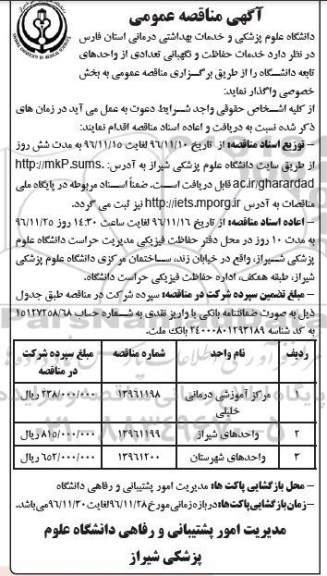 آگهی مناقصه عمومی
دانشگاه علوم پزشکی و خدمات بهداشتی درمانی استان فارس
در نظر دارد خدمات حفاظت و نگهبانی تعدادی از واحدهای
تابعه دانشگاه را از طریق برگزاری مناقصه عمومی به بخش
خصوصی واگذار نماید:
از کلیه اشخاص حقوقی واجد شرایط دعوت به عمل می آید در زمان های
ذکر شده نسبت به دریافت و اعاده اسناد مناقصه اقدام نمایند:
– توزیع اسناد مناقصه: از تاریخ ۹۶/۱۱/۱۰ لغایت ۹۶/۱۱/۱۵ به مدت شش روز
از طریق سایت دانشگاه علوم پزشکی شیراز به آدرس: http://mkP.sums.
ac.ir/gharardad قابل دریافت است. ضمناً اسناد مربوطه در پایگاه ملی
مناقصات به آدرس http://iets.mporg.ir نیز ثبت می گردد.
– اعاده اسناد مناقصه: از تاریخ ۹۶/۱۱/۱۶ لغایت ساعت ۱۴:۳۰ روز ۹۶/۱۱/۲۵
به مدت ۱۰ روز در محل دفتر حفاظت فیزیکی مدیریت حراست دانشگاه علوم
پزشکی شیراز، واقع در خیابان زند، ساختمان مرکزی دانشگاه علوم پزشکی
شیراز، طبقه همکف، اداره حفاظت فیزیکی حراست دانشگاه.
– مبلغ تضمین سپرده شرکت در مناقصه: سپرده شرکت در مناقصه طبق جدول
ذیل به صورت ضمانتنامه بانکی یا واریز نقدی به شماره حساب ۱۵۱۲۷۲۵۸/۶۸
به کد شناسه ۲۴۰۰۰۸۰۱۲۹۳۱۸۹ بانک ملت.
ردیف نام واحد شماره مناقصه مبلغ سپرده شرکت در مناقصه
۱ مرکز آموزشی درمانی خلیلی ۱۳۹۶۱۱۹۸ ۲۳۸/۰۰۰/۰۰۰ ریال
۲ واحدهای شیراز ۱۳۹۶۱۱۹۹ ۸۱۵/۰۰۰/۰۰۰ ریال
۳ واحدهای شهرستان ۱۳۹۶۱۲۰۰ ۶۵۲/۰۰۰/۰۰۰ ریال
– محل بازگشایی پاکت ها: مدیریت امور پشتیبانی و رفاهی دانشگاه
– زمان بازگشایی پاکت‌ها: در بازه زمانی مورخ ۹۶/۱۱/۲۸ لغایت ۹۶/۱۱/۳۰ می‌باشد.
مدیریت امور پشتیبانی و رفاهی دانشگاه علوم
پزشکی شیراز